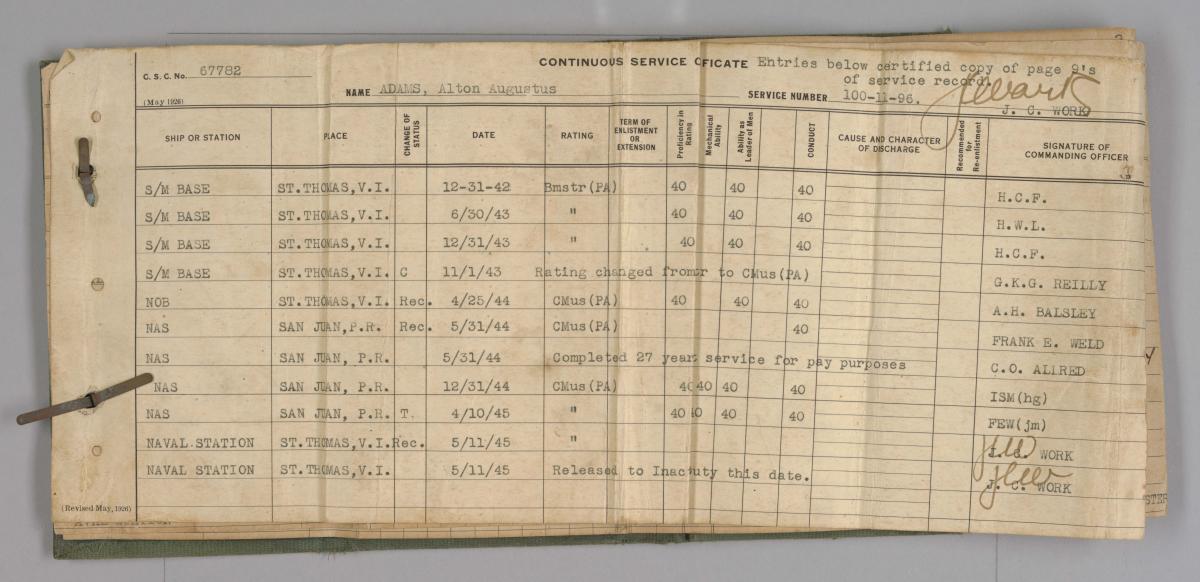 C. S. C. No. 67782
CONTINUOUS SERVICE CFICATE Entries below certified copy of page 9's
of service record.
(May 1926)
NAME ADAMS, Alton Augustus
SERVICE NUMBER 100-11-96.
J. C. WORK
SHIP OR STATION PLACE CHANGE OF STATUS DATE RATING TERM OF ENLISTMENT OR EXTENSION Proficiency in Rating Mechanical Ability Ability as Leader of Men CONDUCT CAUSE AND CHARACTER OF DISCHARGE Recommended for Re-enlistment SIGNATURE OF COMMANDING OFFICER
S/M BASE ST.THOMAS,V.I. 12-31-42 Bmstr(PA) 40 40 40 H.C.F.
S/M BASE ST.THOMAS,V.I. 6/30/43 " 40 40 40 H.W.L.
S/M BASE ST.THOMAS,V.I. 12/31/43 " 40 40 40 H.C.F.
S/M BASE ST.THOMAS,V.I. C 11/1/43 Rating changed from r to CMus(PA) G.K.G. REILLY
NOB ST.THOMAS,V.I. Rec. 4/25/44 CMus(PA) 40 40 40 A.H. BALSLEY
NAS SAN JUAN,P.R. Rec. 5/31/44 CMus(PA) 40 FRANK E. WELD
NAS SAN JUAN, P.R. 5/31/44 Completed 27 year service for pay purposes C.O. ALLRED
NAS SAN JUAN, P.R. 12/31/44 CMus(PA) 40 40 40 40 ISM(hg)
NAS SAN JUAN, P.R. T. 4/10/45 " 40 40 40 40 FEW(jm)
NAVAL STATION ST.THOMAS,V.I. Rec. 5/11/45 " J.C. WORK
NAVAL STATION ST.THOMAS,V.I. 5/11/45 Released to Inac uty this date. J. C. WORK
(Revised May, 1926)